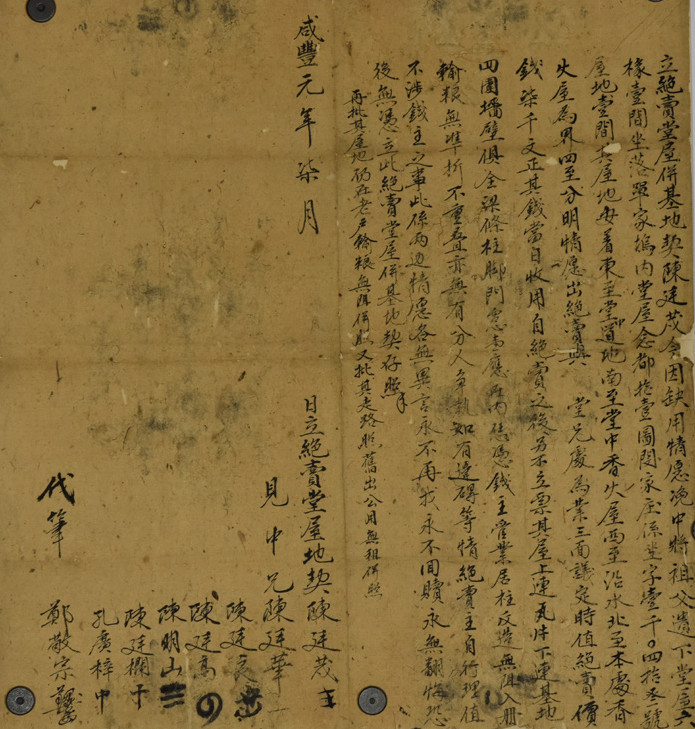 立絕賣堂屋併基地契陳廷茂今因缺用情愿浼中將祖父遺下堂屋六
椽壹間坐落單家塢內堂屋念都拾壹圖閏家屋係坐字壹千〇四拾叁號
屋地壹間其屋地每着東至堂道地南至堂中香火屋西至沿水北至本處香
火屋為界四至分明情愿出絕賣與 堂兄慶為業三面議定時值絕賣價
錢柒千文正其錢當日收用自絕賣之後另不立票其屋上連瓦片下連基地
四圍墻壁俱全梁條柱脚門窓在內恁憑錢主管業居柱改造無阻入冊
輸粮無準折不重叠亦無有分人爭執如有違碍等情絕賣主自行理值
不涉錢主之事此係兩边情愿各無異言永不再找永不回贖永無翻悔恐
後無憑立此絕賣堂屋併基地契存照
再批其屋地仍在老户輸粮無阻併照又批其走路照舊出公用無租併照
咸豐元年柒月 日立絕賣堂屋地契陳廷茂
見中兄陳廷華
陳廷良
陳廷高
陳明山
陳廷櫊
孔廣梓中
代筆 鄭敬宗